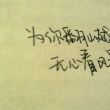 为你翻山越
无心看风